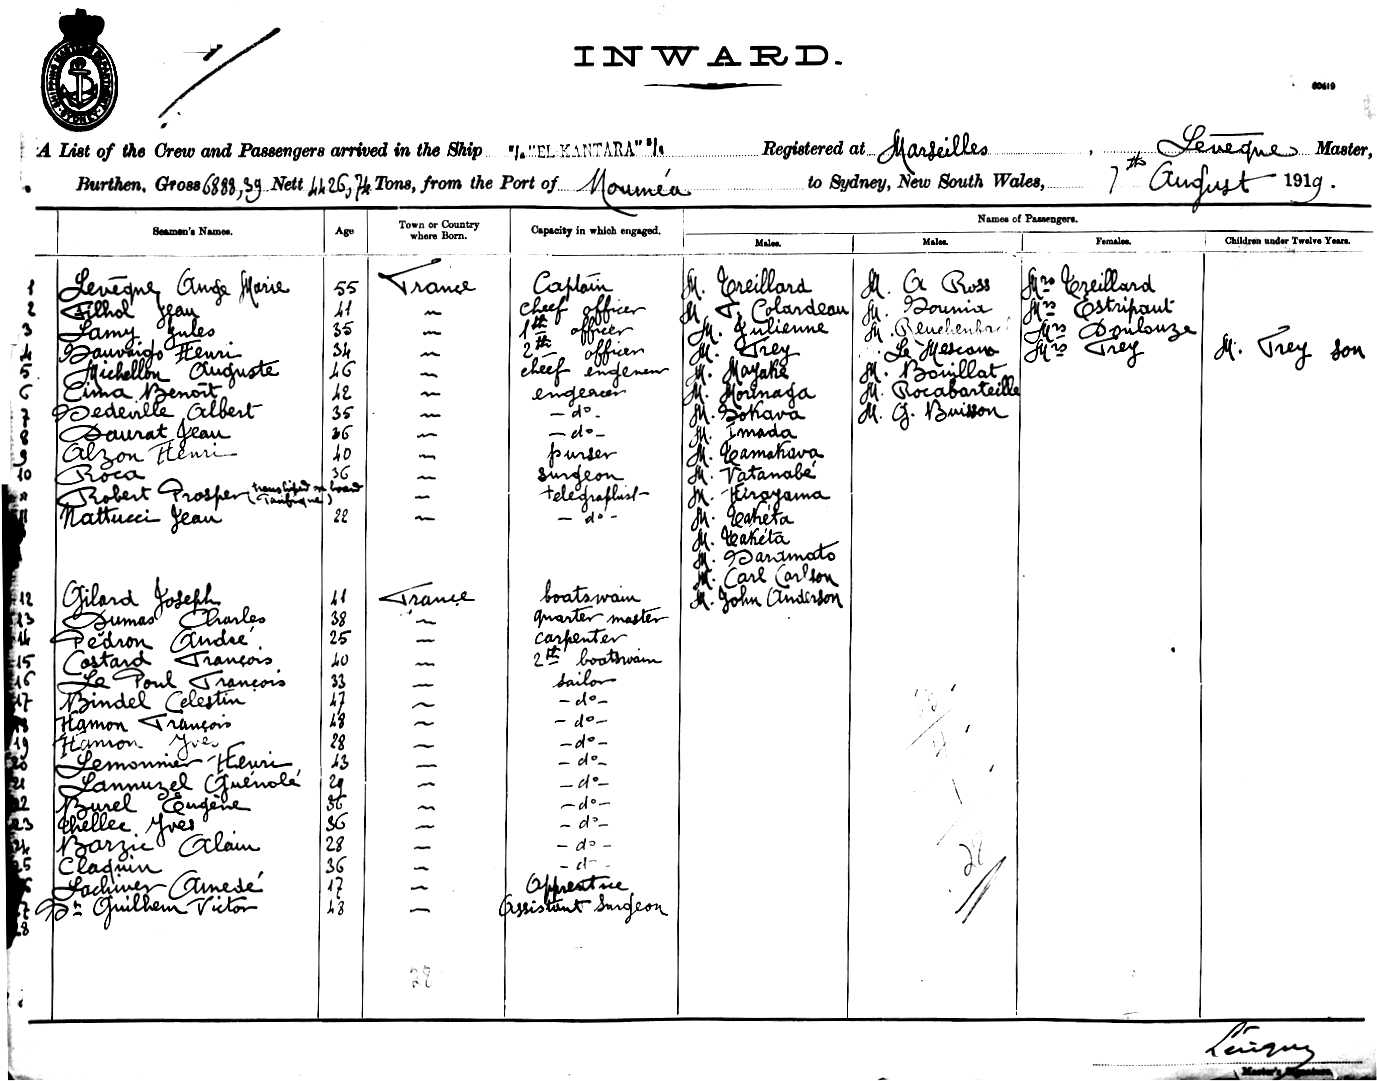 INWARD.
60619
A List of the Crew and Passengers arrived in the Ship "EL-KANTARA" Registered at Marseilles, Levêque Master,
Burthen, Gross 6888,39 Nett 4426,74 Tons, from the Port of Nouméa to Sydney, New South Wales, 7th August 1919.
Seamen's Names. Age Town or Country where Born. Capacity in which engaged. Names of Passengers.
Males. Males. Females. Children under Twelve Years.
1 Levêque Ange Marie 55 France Captain M. Treillard M. A Ross Mrs Treillard
2 Filhol Jean 41 — cheef officer M. F. Colardeau M. Dounia Mrs Estripaut
3 Lamy Jules 35 — 1th officer M. Julienne M. Mrs Doulouze
4 Henri 34 — 2th officer M. Trey Le Mescam Mrs Trey M. Trey son
5 Michellon Auguste 46 — cheef engeneer M. Mayaké M. Bouillat
6 Cima Benoît 42 — engeneer M. Morinaga M. Rocabarteille
7 Dedeville Albert 35 — do - M. Sokava M. G. Buisson
8 Daurat Jean 36 — do - M. Imada
9 Alzon Henri 40 — purser M. Tamakava
10 Roca 36 — surgeon M. Vatanabé
Robert Prosper (transhiped on board — telegraphist M. Hirayama
11 Nattucci Jean 22 — do - M. Takéta
M. Takéta
M. Daramato
M. Carl Carlson
12 Gilard Joseph 41 France boatswain M. John Anderson
13 Dumas Charles 38 — quarter master
14 Pédron André 25 — carpenter
15 Costard François 40 — 2th boatswain
16 Le Poul François 33 — sailor
17 Bindel Celestin 47 — do -
18 Hamon François 48 — do -
19 Hamon Yves 28 — do -
20 Lemonnier Henri 43 — do -
21 Lannuzel Guénolé 29 — do -
22 Burel Eugène 36 — do -
23 Thellec Yves 36 — do -
24 Barzic Alain 28 — do -
25 Claquin 36 — do -
26 Lachiver Amedé 17 — Apprentice
27 Dr Guilhem Victor 43 — Assistant Surgeon
28
28
28
Levêque
Master's Signature.